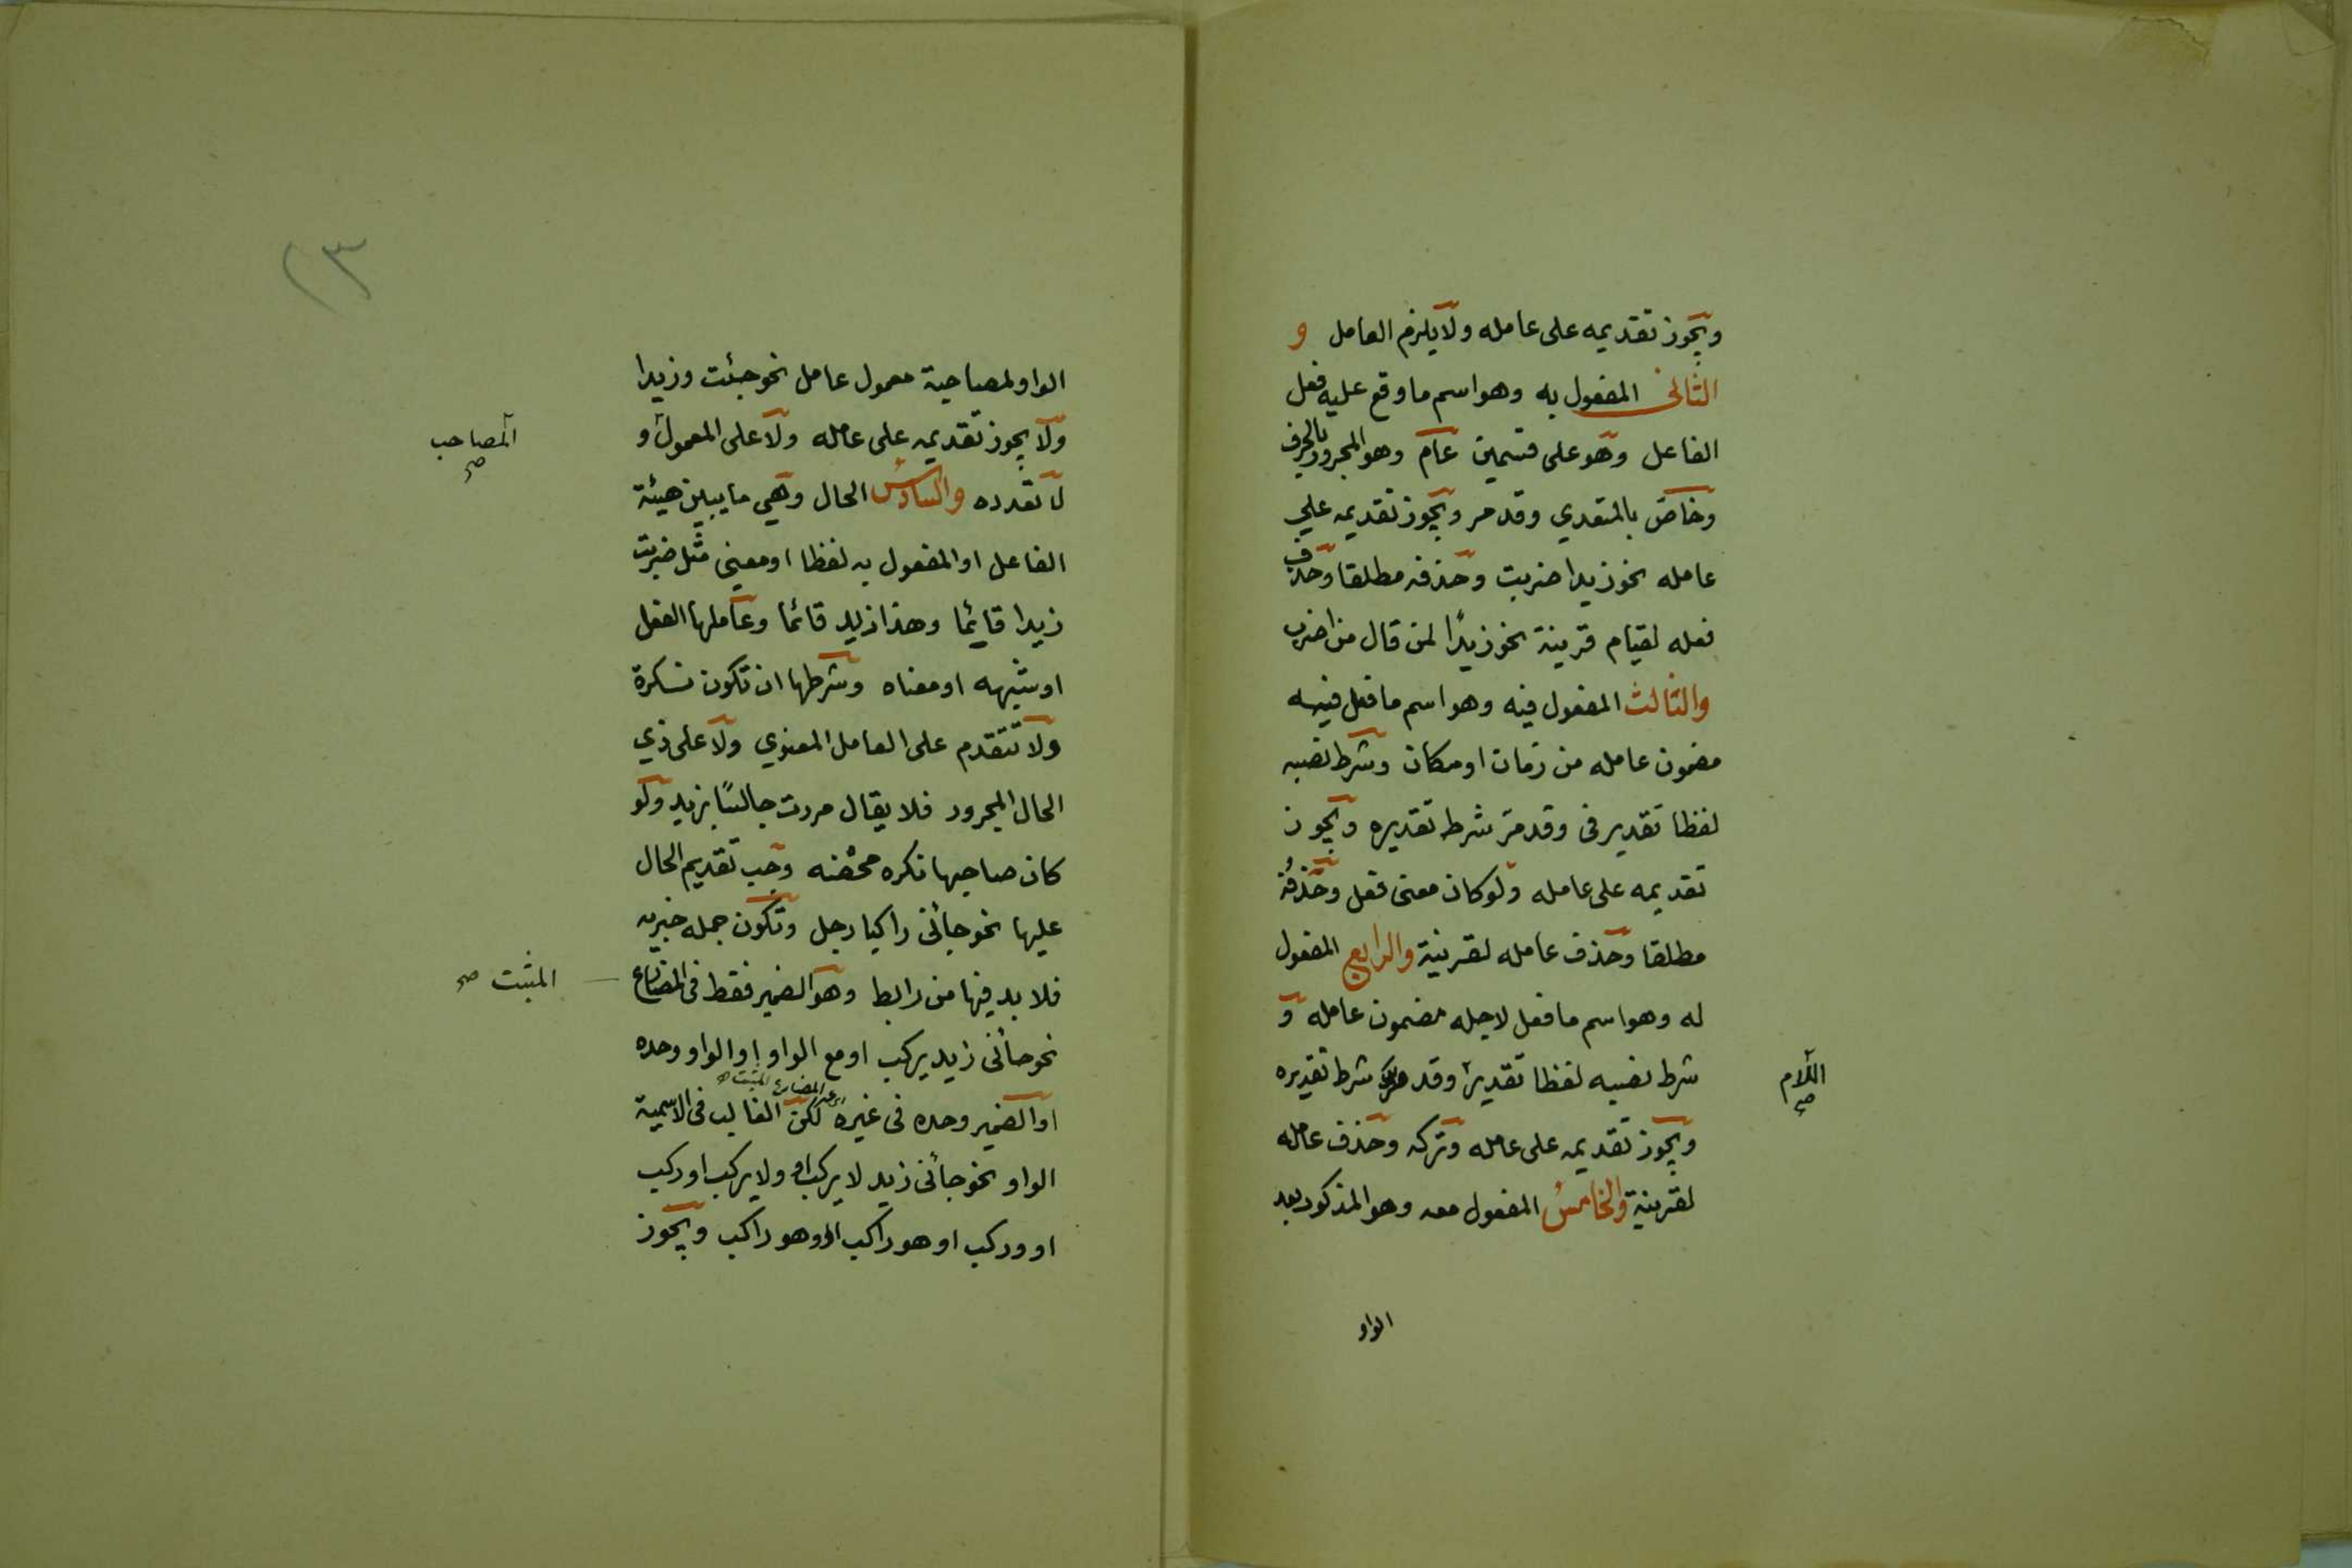 ويجوز تقديمه على عامله ولا يلزم العامل و
الثانى المفعول به وهو اسم ما وقع عليه فعل
الفاعل وهو على قسمين عام وهو المجرور بالحرف
وخاص بالمتعدي وقد مر ويجوز تقديمه علي
عامله نحو زيدا ضربت وحذفه مطلقا وحذف
فعله لقيام قرينة نحو زيدًا لمن قال من اضرب
والثالث المفعول فيه وهو اسم ما فعل فيه
مضمون عامله من زمان او مكان وشرط نصبه
لفظا تقدير فى وقد مرّ شرط تقديره ويجوز
تقديمه على عامله ولو كان معنى فعل وحذفُه
مطلقا وحذف عامله لقرينة والرابع المفعول
له وهو اسم ما فعل لاجله مضمون عامله و
شرط نصبه لفظا تقدير وقد مر شرط تقديره
اللام صح
ويجوز تقديمه على عامله وتركه وحذف عامله
لقرينة والخامسُ المفعول معه وهو المذكور بعد
الواو
٢٣
الواو لمصاحبة معمول عامل نحو جئت وزيدا
ولا يجوز تقديمه على عامله ولا على المعمول و
المصاحب صح
لا تعدده والسادسُ الحال وهي ما يبين هيئة
الفاعل او المفعول به لفظا او معنى مثل ضربت
زيدا قائما وهذا زيد قائما وعاملها الفعل
او شبهه او معناه وشرطها ان تكون نكرة
ولا تتقدم على العامل المعنوي ولا على ذي
الحال المجرور فلا يقال مررت جالسًا بزيد ولو
كان صاحبها نكره محضه وجب تقديم الحال
عليها نحو جائنى راكبا رجل وتكون جمله خبريه
فلا بد فيها من رابط وهو الضمير فقط فى المضارع
المثبت صح
نحو جائنى زيد يركب او مع الواو او الواو وحده
او الضمير وحده فى غيره لكن الغالب فى الاسمية
الواو نحو جائنى زيد لا يركب او ولا يركب او ركب
او وركب او هو راكب او وهو راكب ويجوز